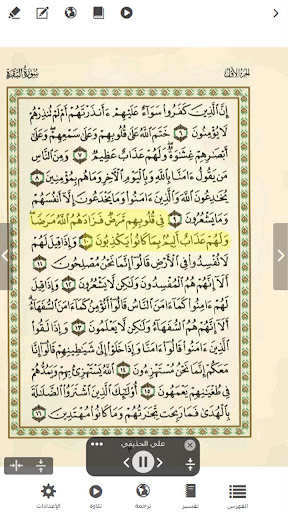 سُورَةُ البَقَرَةِ الجُزْءُ الأَوَّلُ
إِنَّ ٱلَّذِينَ كَفَرُوا۟ سَوَآءٌ عَلَيْهِمْ ءَأَنذَرْتَهُمْ أَمْ لَمْ تُنذِرْهُمْ
لَا يُؤْمِنُونَ ٦ خَتَمَ ٱللَّهُ عَلَىٰ قُلُوبِهِمْ وَعَلَىٰ سَمْعِهِمْ وَعَلَىٰٓ
أَبْصَٰرِهِمْ غِشَٰوَةٌ وَلَهُمْ عَذَابٌ عَظِيمٌ ٧ وَمِنَ ٱلنَّاسِ
مَن يَقُولُ ءَامَنَّا بِٱللَّهِ وَبِٱلْيَوْمِ ٱلْءَاخِرِ وَمَا هُم بِمُؤْمِنِينَ ٨
يُخَٰدِعُونَ ٱللَّهَ وَٱلَّذِينَ ءَامَنُوا۟ وَمَا يَخْدَعُونَ إِلَّآ أَنفُسَهُمْ
وَمَا يَشْعُرُونَ ٩ فِى قُلُوبِهِم مَّرَضٌ فَزَادَهُمُ ٱللَّهُ مَرَضًا
وَلَهُمْ عَذَابٌ أَلِيمٌۢ بِمَا كَانُوا۟ يَكْذِبُونَ ١٠ وَإِذَا قِيلَ لَهُمْ
لَا تُفْسِدُوا۟ فِى ٱلْأَرْضِ قَالُوٓا۟ إِنَّمَا نَحْنُ مُصْلِحُونَ ١١
أَلَآ إِنَّهُمْ هُمُ ٱلْمُفْسِدُونَ وَلَٰكِن لَّا يَشْعُرُونَ ١٢ وَإِذَا قِيلَ
لَهُمْ ءَامِنُوا۟ كَمَآ ءَامَنَ ٱلنَّاسُ قَالُوٓا۟ أَنُؤْمِنُ كَمَآ ءَامَنَ ٱلسُّفَهَآءُ
أَلَآ إِنَّهُمْ هُمُ ٱلسُّفَهَآءُ وَلَٰكِن لَّا يَعْلَمُونَ ١٣ وَإِذَا لَقُوا۟
ٱلَّذِينَ ءَامَنُوا۟ قَالُوٓا۟ ءَامَنَّا وَإِذَا خَلَوْا۟ إِلَىٰ شَيَٰطِينِهِمْ قَالُوٓا۟ إِنَّا
مَعَكُمْ إِنَّمَا نَحْنُ مُسْتَهْزِءُونَ ١٤ ٱللَّهُ يَسْتَهْزِئُ بِهِمْ وَيَمُدُّهُمْ
فِى طُغْيَٰنِهِمْ يَعْمَهُونَ ١٥ أُو۟لَٰٓئِكَ ٱلَّذِينَ ٱشْتَرَوُا۟ ٱلضَّلَٰلَةَ
بِٱلْهُدَىٰ فَمَا رَبِحَت تِّجَٰرَتُهُمْ وَمَا كَانُوا۟ مُهْتَدِينَ ١٦
علي الحذيفي
الفهرس تفسير ترجمة تلاوة الإعدادات